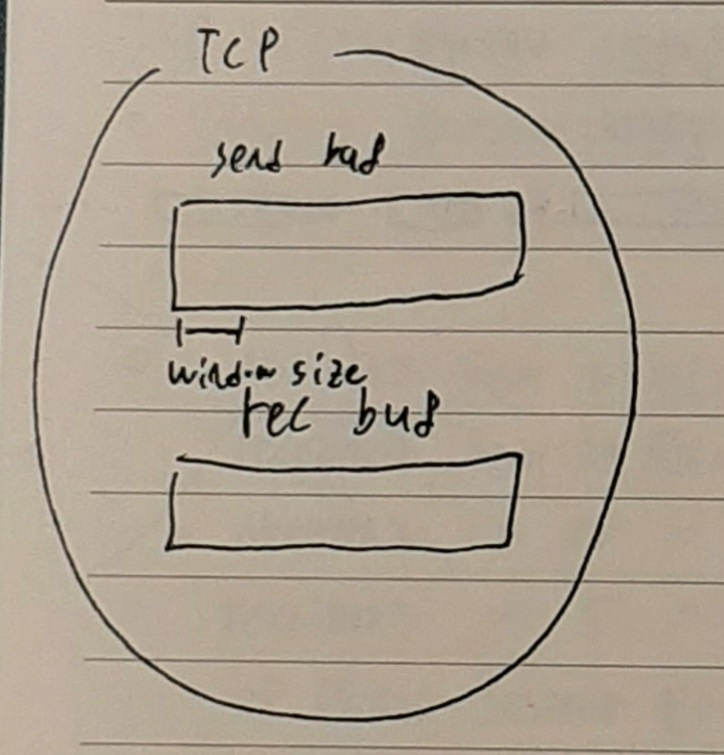 TCP
send buf
window size
rec buf